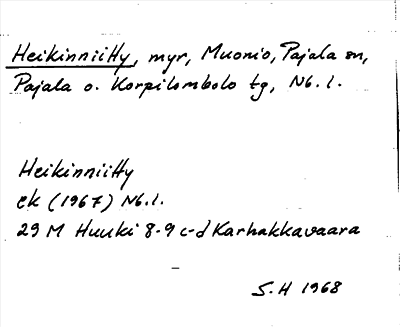 Heikinniitty, myr, Muonio, Pajala sn,
Pajala o. Korpilombolo tg, Nb. l.
Heikinniitty
ek (1967) Nb. l.
29 M Huuki 8-9 c-d Karhakkavaara
S.H 1968